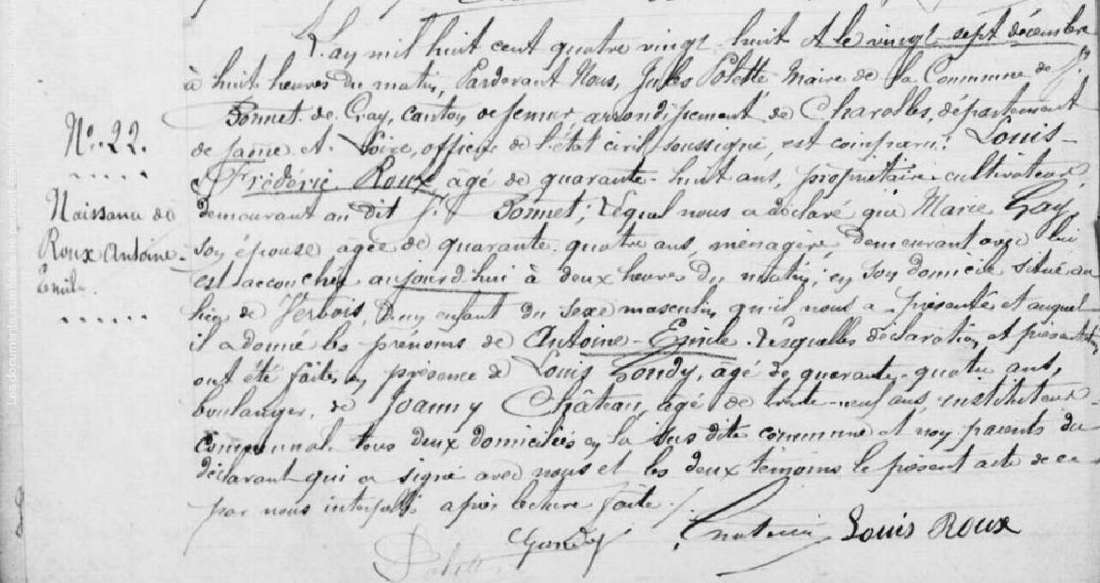 L'an mil huit cent quatre vingt huit et le vingt sept décembre
à huit heures du matin, Pardevant Nous, Jules Polette Maire de la Commune de St
Bonnet de Cray, canton de Semur, arrondissement de Charolles, département
de Saône et Loire, officier de l'état civil soussigné, est comparu: Louis-
Frédéric Roux, âgé de quarante-huit ans, propriétaire cultivateur,
demeurant au dit St Bonnet; Lequel nous a déclaré que Marie
son épouse âgée de quarante quatre ans, ménagère, demeurant avec lui
est accouchée aujourd'hui à deux heures du matin, en son domicile situé au
lieu de Verbois, d'un enfant du sexe masculin qu'il nous a présenté et auquel
il a donné les prénoms de Antoine-Emile. Lesquelles déclaration et présentation
ont été faites en présence de Louis agé de quarante-quatre ans,
boulanger, de Joanny Château, agé de trente-neuf ans, instituteur
communal tous deux domiciliés en la sus dite commune et non parents du
déclarant qui a signé avec nous et les deux témoins le présent acte de ce
par nous interpellé après lecture faite.
No. 22.
Naissance de
Roux Antoine-
Emile
Louis Roux